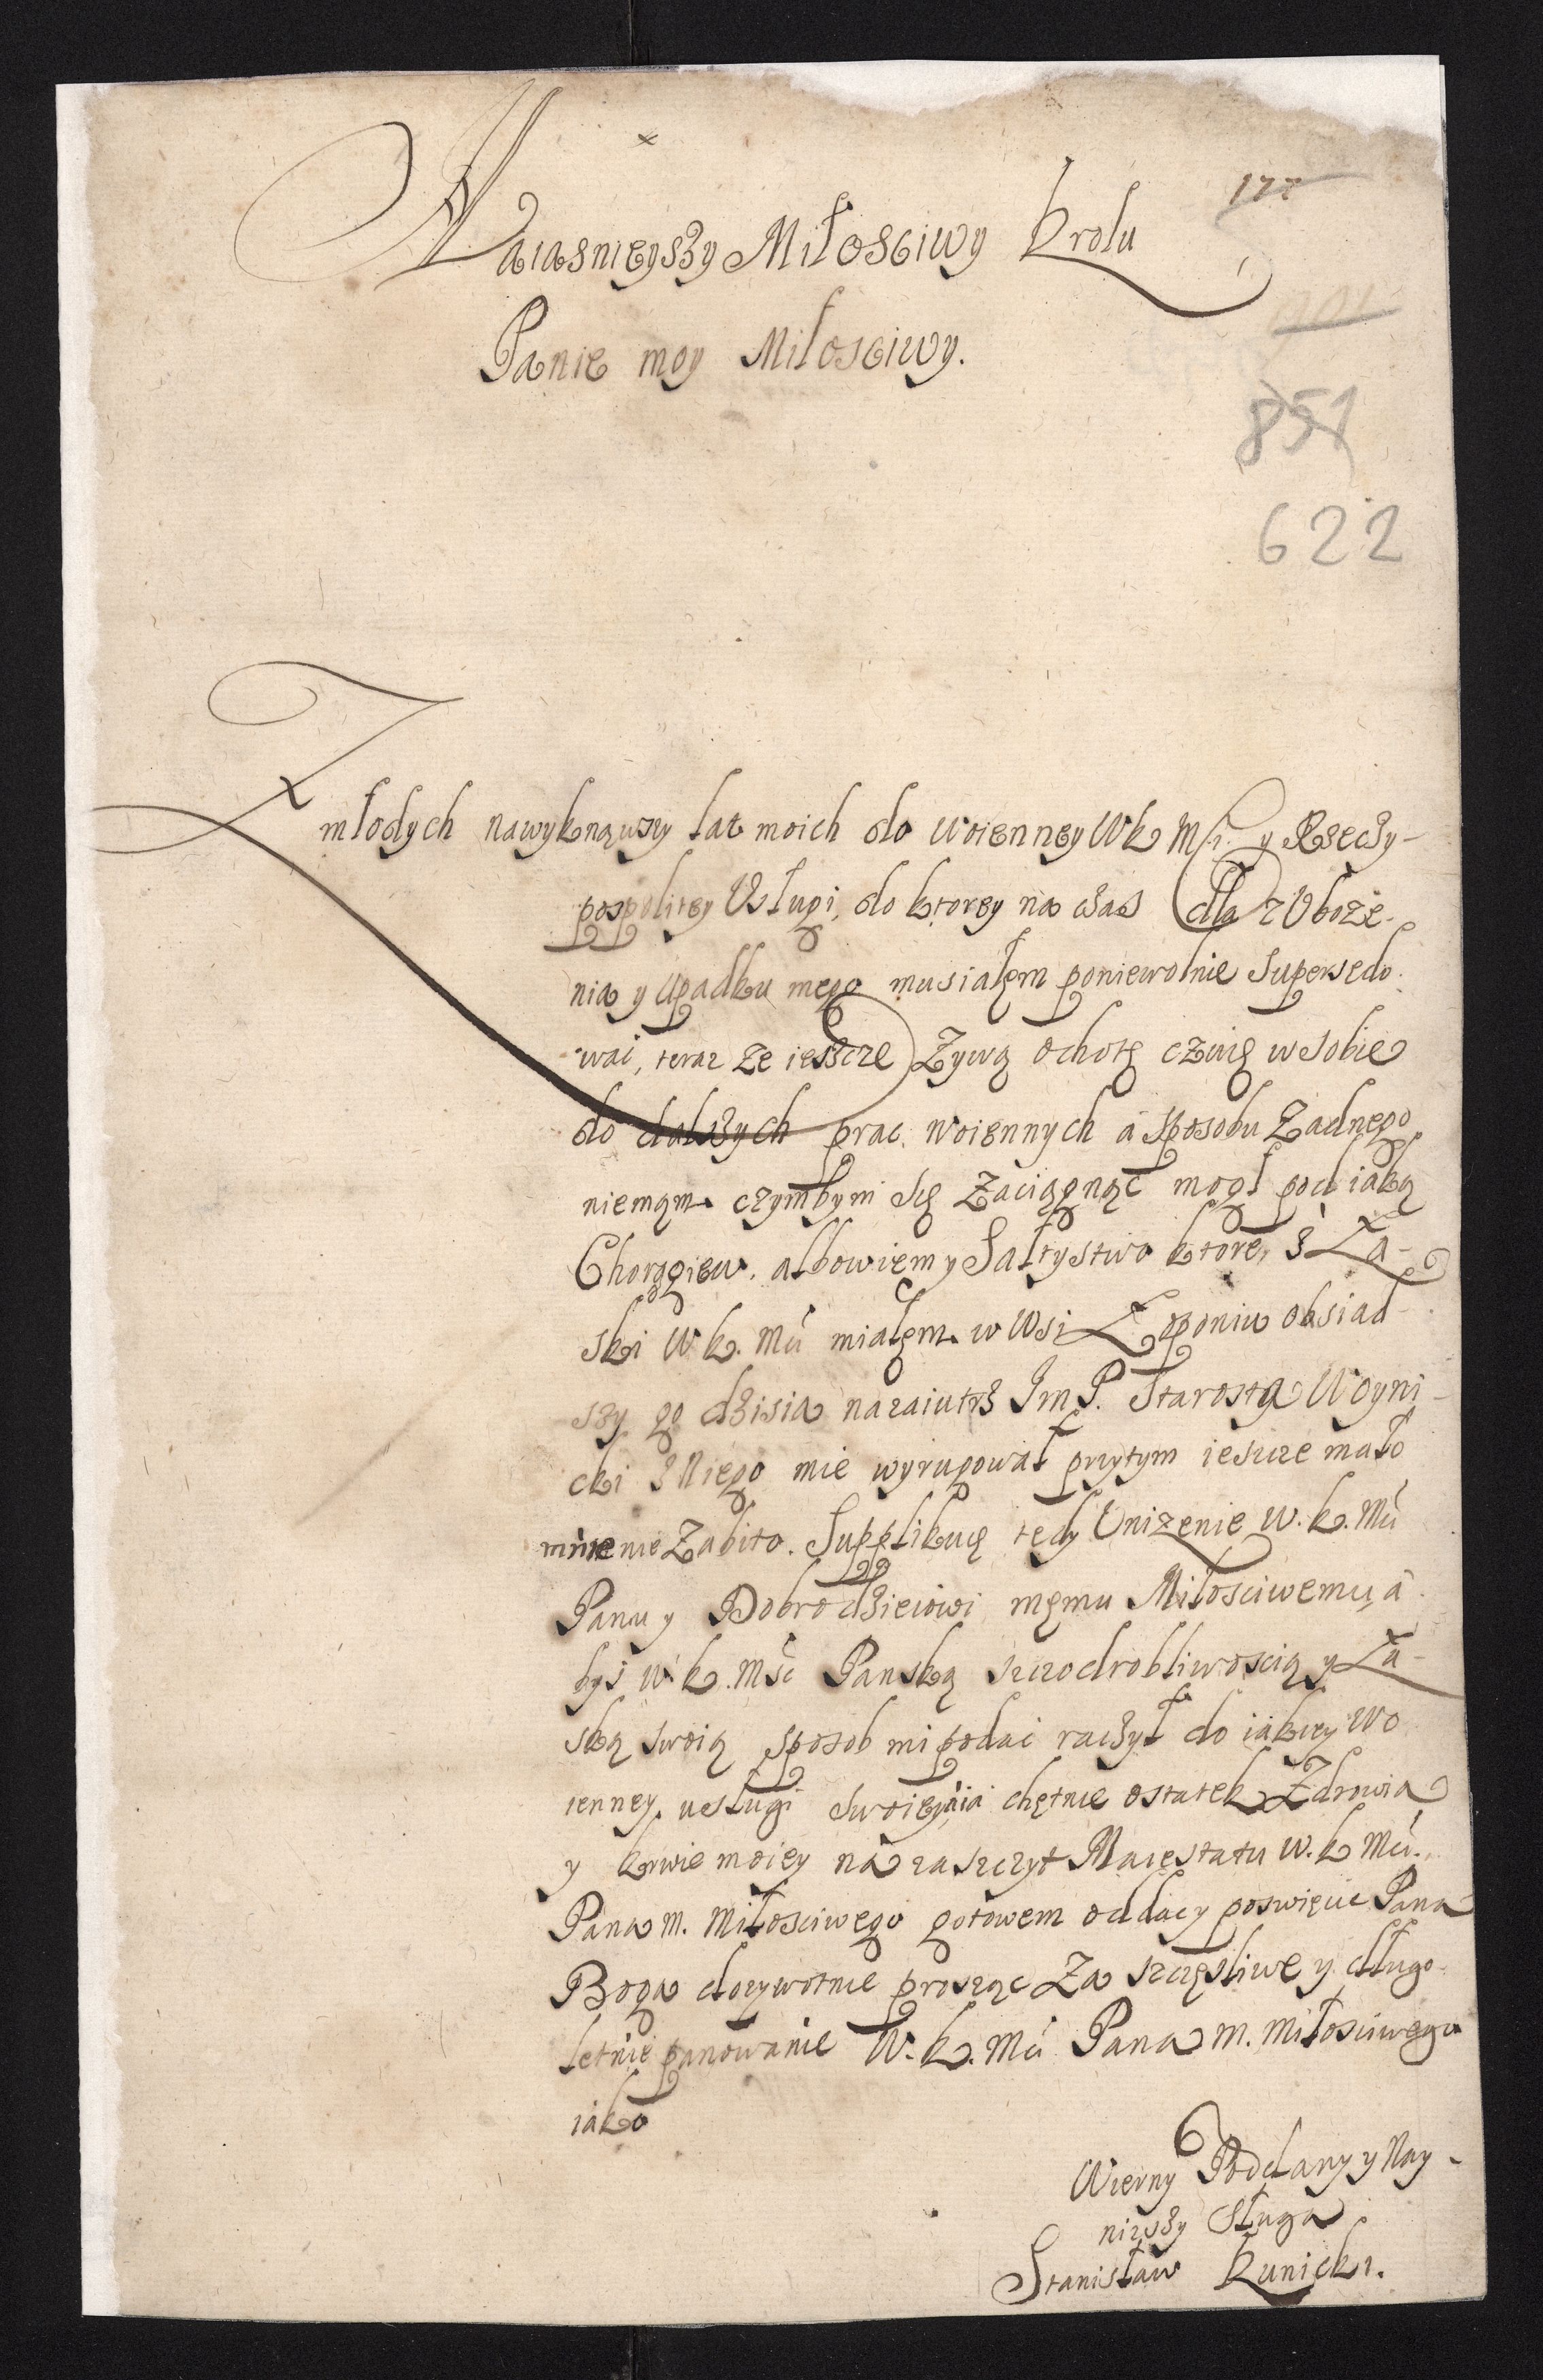 177
Naiasnieyszy Miłosciwy Krolu
Panie moy Miłosciwy.
851
622
Z młodych nawyknąwszy lat moich do woienney WK Mści y Rzeczy-
pospolitey Usługi, do ktorey na czas dla zUboże-
nia y upadku mego musiałem poniewolnie Supersedo-
wać, teraz że ieszcze Żywą ochotę czuię w sobie
do dalszych prac woiennych á sposobu żadnego
niemąm czymbym się Zaciągnąć mogł pod iaką
Chorągiew, albowiem y Sałtystwo ktore, z Ła-
ski W K. Mci miałem w Wsi Łoponiu obsiad-
szy go dzisia nazaiutrz Im P. Starosta Woyni-
cki z Niego mie wyrugował przytym ieszcze mało
mnie nie Zabito. Supplikuię tedy Uniżenie W. K. Mci
Panu y Dobrodzieiowi memu Miłosciwemu, á
byś W. K. Mść Panską szczodrobliwoscią y Ła-
ską swoią sposob mi podać raczył do iakiey wo
ienney usługi swoiey, á ia chętnie ostatek Zdrowia
y krwie moiey ná zaszczyt Maiestatu W. K Mci.
Pana m. Miłosciwego gotowem oddac y poswięcic Pana
Boga dozywotnie prosząc Za szczęśliwe y długo-
letnie panowanie W. K. Mci Pana m. Miłosciwego
iáko
Wierny Poddany y Nay-
nizszy Sługa
Stanisław Kunicki.